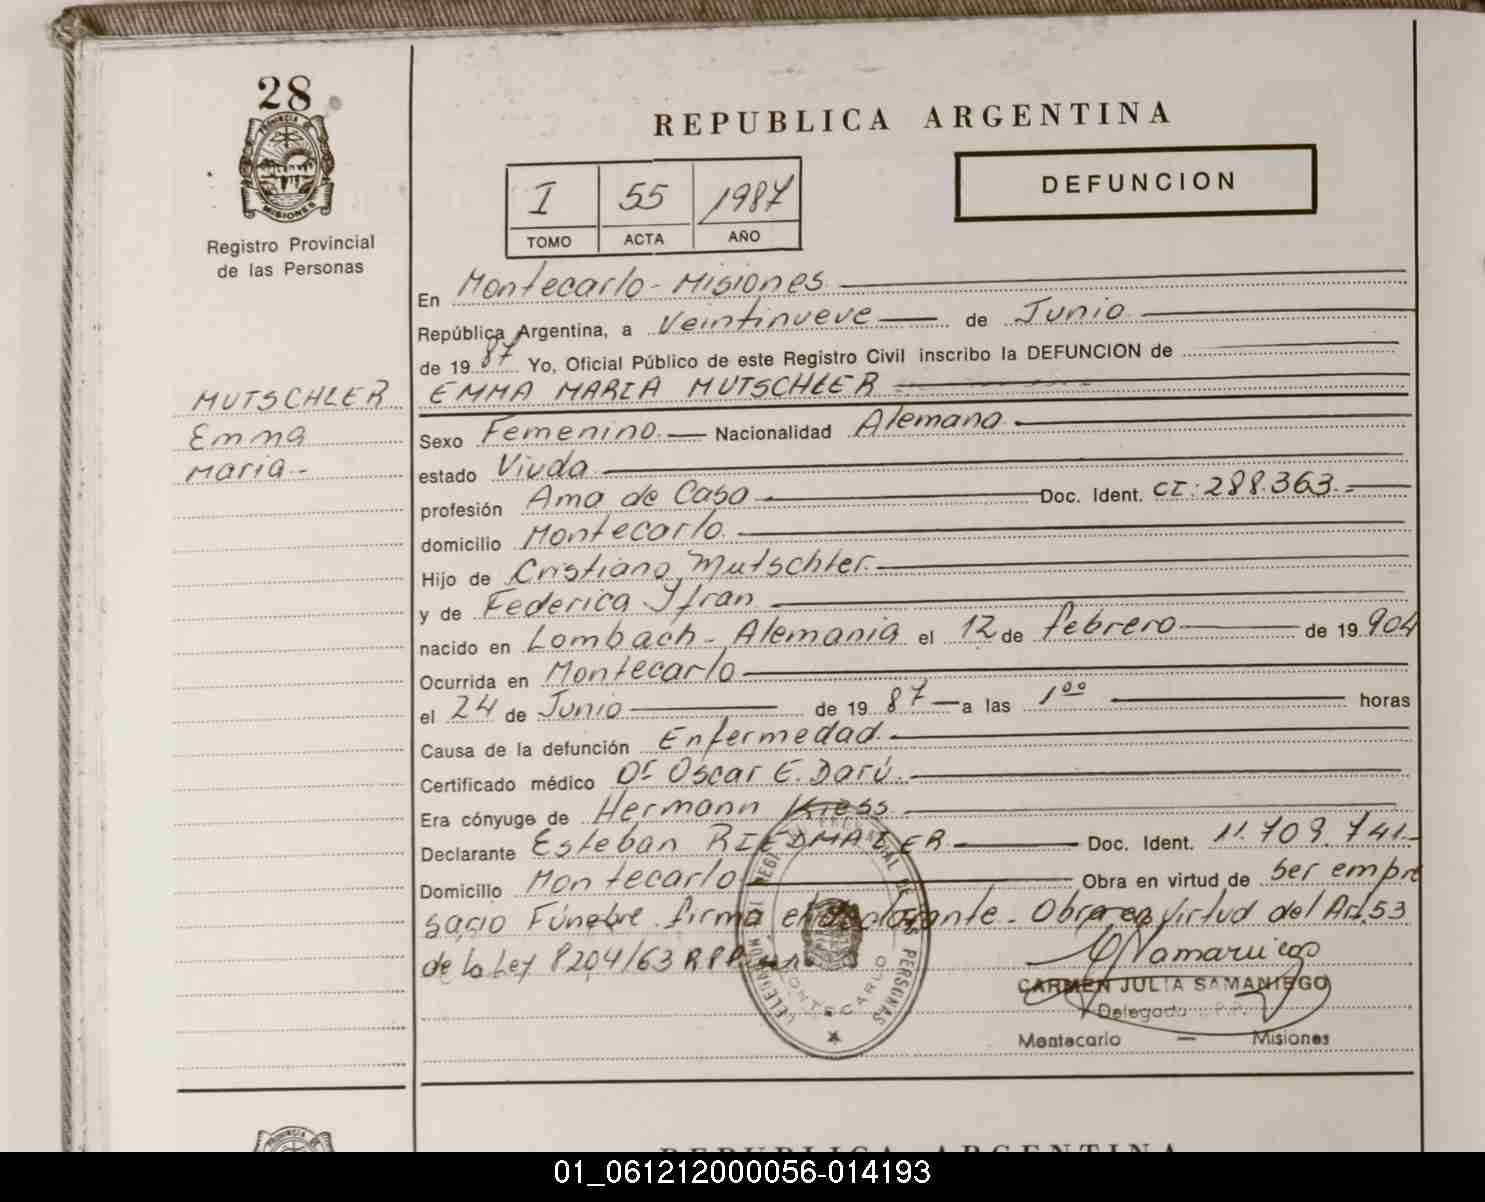 28
PROVINCIA DE
MISIONES
Registro Provincial
de las Personas
REPUBLICA ARGENTINA
I 55 1987
TOMO ACTA AÑO
DEFUNCION
En Montecarlo - Misiones
República Argentina, a Veintinueve de Junio
de 19 87 Yo, Oficial Público de este Registro Civil inscribo la DEFUNCION de
MUTSCHLER
Emma
Maria -
EMMA MARIA MUTSCHLER
Sexo Femenino Nacionalidad Alemana
estado Viuda
profesión Ama de Casa Doc. Ident. CI: 288.363.-
domicilio Montecarlo
Hijo de Cristiano Mutschler
y de Federica Ifran
nacido en Lombach - Alemania el 12 de febrero de 19 904
Ocurrida en Montecarlo
el 24 de Junio de 19 87 a las 1 00 horas
Causa de la defunción Enfermedad.
Certificado médico Dr Oscar E. Darú.
Era cónyuge de Hermann Kress
Declarante Esteban RIEDMAIER Doc. Ident. 11.709.741-
Domicilio Montecarlo Obra en virtud de ser empre
sario Fúnebre. firma el declarante - Obra en virtud del Art. 53
de la Ley 8204/63 RPP
MONTECARLO
PERSONAS
CARMEN JULIA SAMANIEGO
Delegada R.P.P.
Montecarlo — Misiones
PROVINCIA DE
REPUBLICA ARGENTINA
01_061212000056-014193